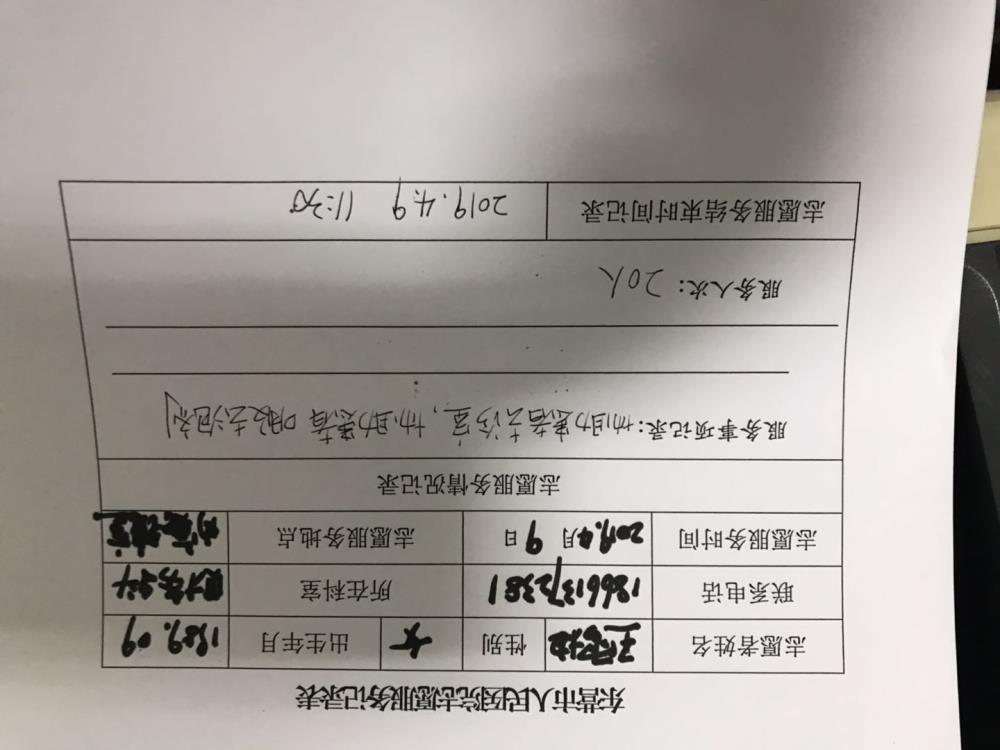 东营市人民医院志愿服务记录表
志愿者姓名 性别 女 出生年月 1989.09
联系电话 18661372381 所在科室
志愿服务时间 2019.4月9日 志愿服务地点
志愿服务情况记录
服务事项记录：协助患者去诊室，协助患者服去泡剂
服务人次：20人
志愿服务结束时间记录 2019.4.9 11:30